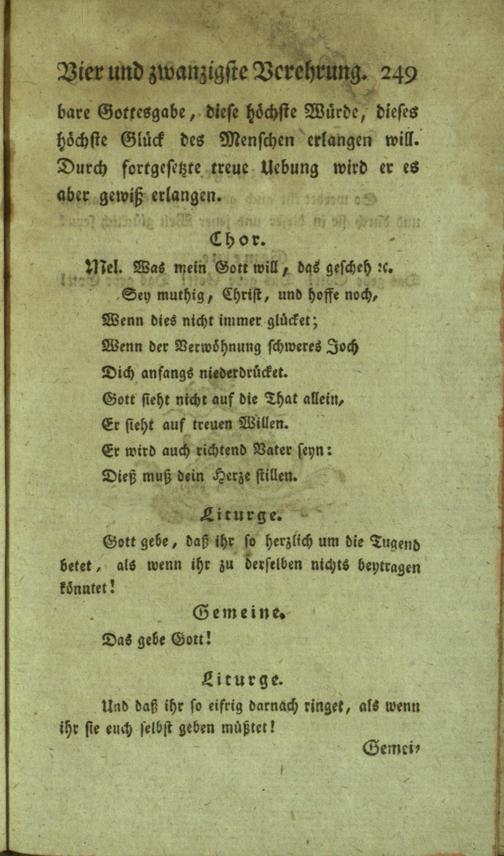 Vier und zwanzigste Verehrung. 249
bare Gottesgabe, diese höchste Würde, dieses
höchste Glück des Menschen erlangen will.
Durch fortgesetzte treue Uebung wird er es
aber gewiß erlangen.
Chor.
Mel. Was mein Gott will, das gescheh ꝛc.
Sey muthig, Christ, und hoffe noch,
Wenn dies nicht immer glücket;
Wenn der Verwöhnung schweres Joch
Dich anfangs niederdrücket.
Gott sieht nicht auf die That allein,
Er sieht auf treuen Willen.
Er wird auch richtend Vater seyn:
Dieß muß dein Herze stillen.
Liturge.
Gott gebe, daß ihr so herzlich um die Tugend
betet, als wenn ihr zu derselben nichts beytragen
könntet!
Gemeine.
Das gebe Gott!
Liturge.
Und daß ihr so eifrig darnach ringet, als wenn
ihr sie euch selbst geben müßtet!
Gemei-